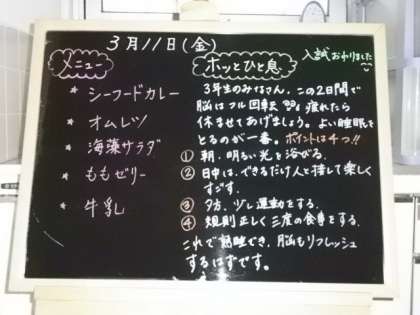 3月11日(金)
メニュー
* シーフードカレー
* オムレツ
* 海藻サラダ
* ももゼリー
* 牛乳
ホッとひと息
入試おわりました
3年生のみなさん、この2日間で
脳はフル回転 疲れたら
休ませてあげましょう。よい睡眠を
とるのが一番。ポイントは4つ!!
① 朝、明るい光を浴びる。
② 日中は、できるだけ人と接して楽しく
すごす。
③ 夕方、少し運動をする。
④ 規則正しく三度の食事をする。
これで熟睡でき、脳もリフレッシュ
するはずです。